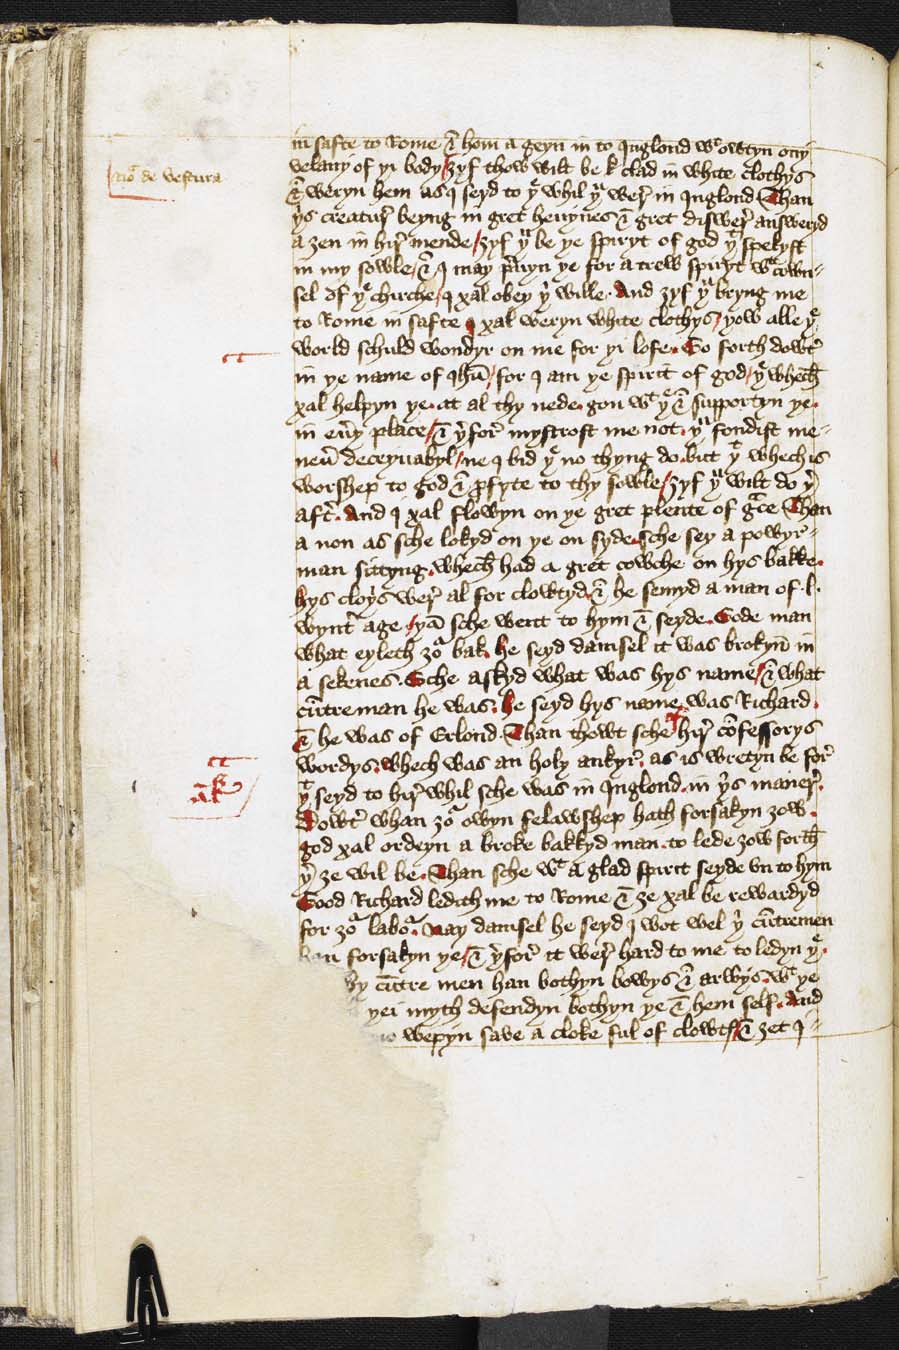 nō de vestura
in safte to Rome & hom a geyn in to Inglond wᵗ owtyn ony
velany of yi body / ȝyf thow wilt be k clad in white clothys
& weryn hem as I seyd to yᵉ whil yᵘ werͬ in Inglond Than
ys creaturͬ beyng in gret heuynes & gret diswerͬ answeryd
a ȝen in hirͬ mende / ȝyf yᵘ be ye spiryt of god yᵗ spekyst
in my sowle / & I may p̄uyn ye for a trew spiryt wᵗ cown=
sel of yᵉ chirche / I xal obey yͥ wille. And ȝyf yᵘ bryng me
to Rome in safte I xal weryn white clothys / yow alle yᵉ
world schuld wondyr on me for yi lofe. Go forth dowtͬ
in ye name of Ihū / for I am ye spirit of god / yᵉ whech
xal helpyn ye. at al thy nede. gon wᵗ yᵉ & supportyn ye.
in eūy place / & yͬforͬ mystrost me not. yᵘ fondist me=
neū deceyuabyl / ne I bid yᵉ no thyng do. but yᵗ whech is
worshep to god & p̱fyte to thy sowle / ȝyf yᵘ wilt do yͬ
aftͬ. And I xal flowyn on ye gret plente of gᵃce Than
a non as sche lokyd on ye on syde. sche sey a powyr=
man sittyng. whech had a gret cowche on hys bakke.
hys cloyͥs werͬ al for clowtyd. & he semyd a man of .l.
wyntͬ age / yā sche went to hym & seyde. Gode man
what eyleth ȝoᵘ bak. he seyd damsel it was brokyn in
a sekenes. Sche askyd what was hys name / & what
cūtreman he was. he seyd hys name was Richard.
& he was of Erlond. Than thowt sche of hirͬ cōfessorys
wordys. whech was an holy ankyrͬ. as is wretyn be forͬ
yᵗ seyd to hirͬ whil sche was in Inglond. in yͥs manerͬ.
Dowtͬ whan ȝoᵘ owyn felawshep hath forsakyn ȝow.
god xal ordeyn a broke bakkyd man. to lede ȝow forth
yͬ ȝe wil be. Than sche wᵗ a glad spirit seyde vn to hym
Good Richard ledith me to Rome & ȝe xal be rewardyd
for ȝoᵘ laboᵘ. Nay damsel he seyd I wot wel yͥ cūtremen
han forsakyn ye / & yͬforͬ it werͬ hard to me to ledyn yᵉ.
 yͥ cūtre men han bothyn bowys & arwys. wᵗ ye
 yei myth defendyn bothyn ye & hem self. And
 no wepyn save a cloke ful of clowtꝭ / & ȝet I=